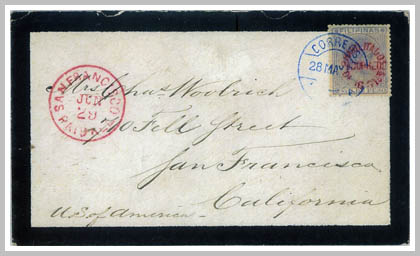 FILIPINAS
CORREOS
28 MAY
SAN FRANCISCO
JUN
29
PAID
Mrs Chas Woolrich
720 Fell Street
San Francisco
California
U.S of America